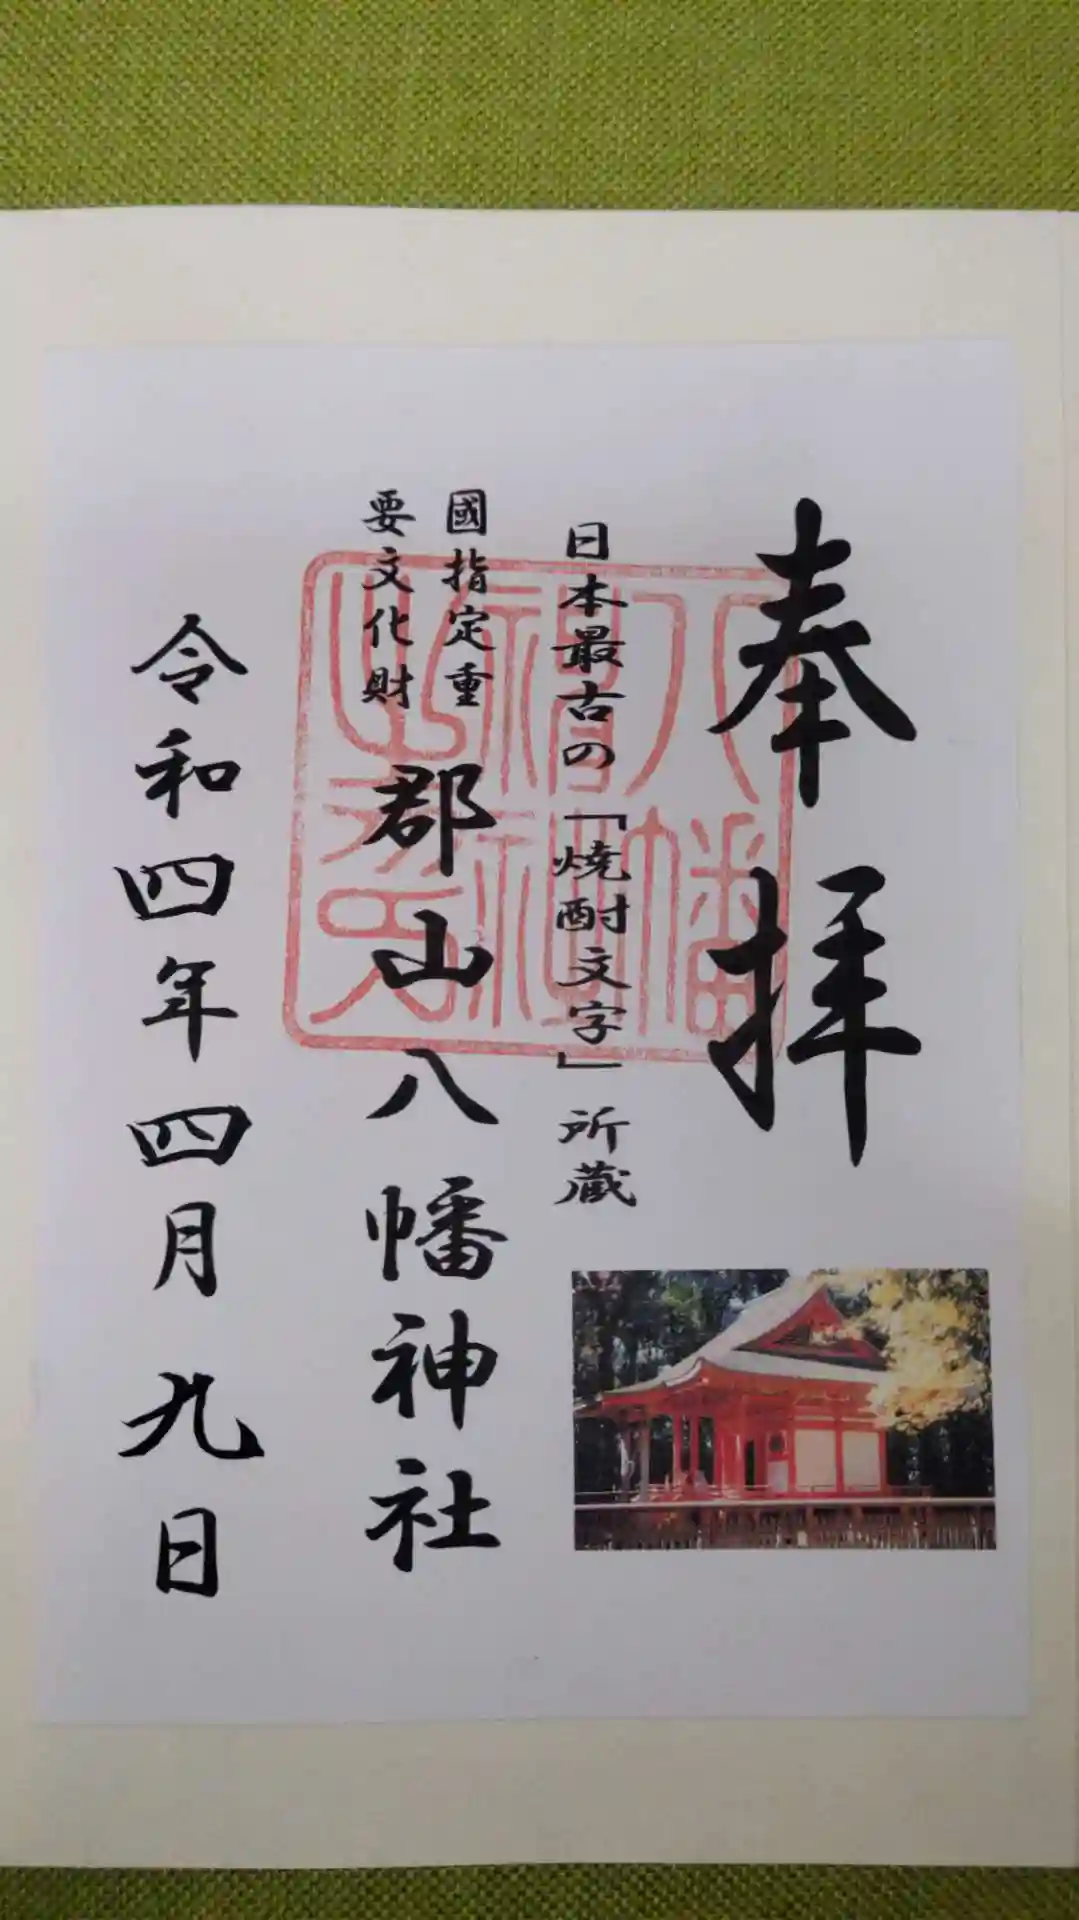 奉拝
日本最古の「焼酎文字」所蔵
國指定重
要文化財
郡山八幡神社
令和四年四月九日
八幡
神社